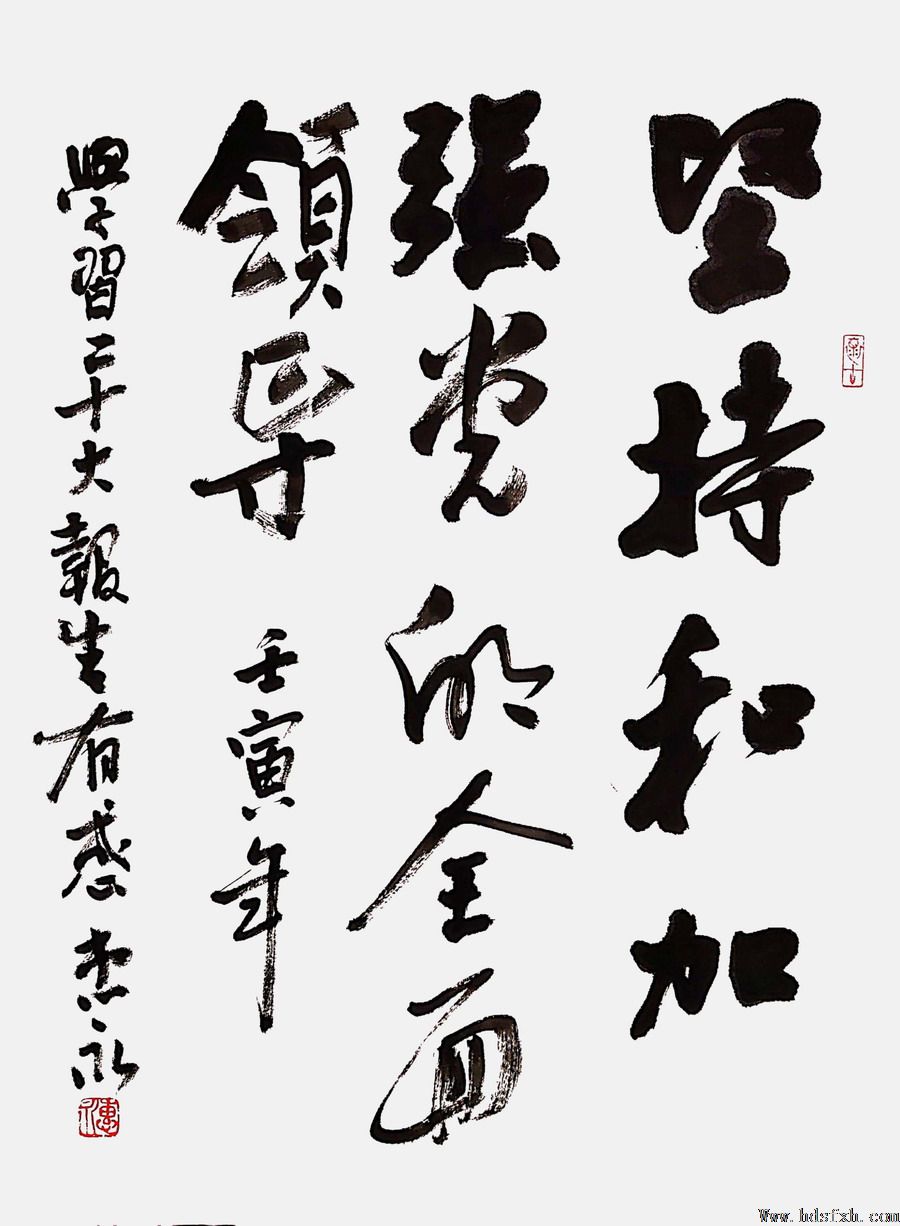 坚持和加
强党的全面
領导 壬寅年
學習二十大報告有感 杰永
Www.hdsfxh.com